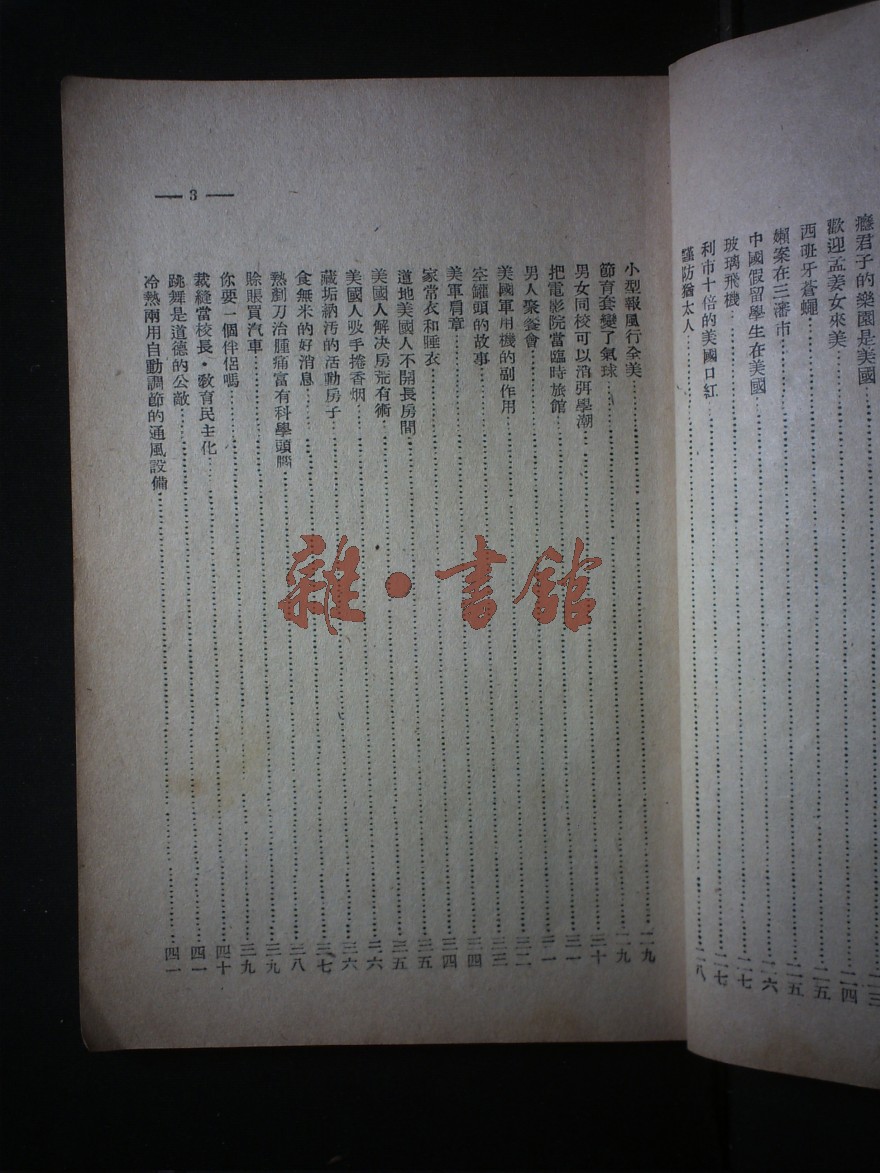 癮君子的樂園是美國……二三
歡迎孟姜女來美……二四
西班牙蒼蠅……二五
嬾案在三藩市……二五
中國假留學生在美國……二六
玻璃飛機……二七
利市十倍的美國口紅……二七
謹防猶太人……二八
— 3 —
小型報風行全美……二九
節育套變了氣球……二九
男女同校可以消弭學潮……三十
把電影院當臨時旅館……三一
男人聚餐會……三一
美國軍用機的副作用……三二
空罐頭的故事……三三
美軍肩章……三四
家常衣和睡衣……三四
道地美國人不開長房間……三五
美國人解决房荒有術……三五
美國人吸手捲香烟……三六
藏垢納汚的活動房子……三六
食無米的好消息……三七
熱剖刀治腫痛富有科學頭腦……三八
賒賬買汽車……三九
你要一個伴侶嗎……三九
裁縫當校長·敎育民主化……四十
跳舞是道德的公敵……四一
冷熱兩用自動調節的通風設備……四一
雜·書館